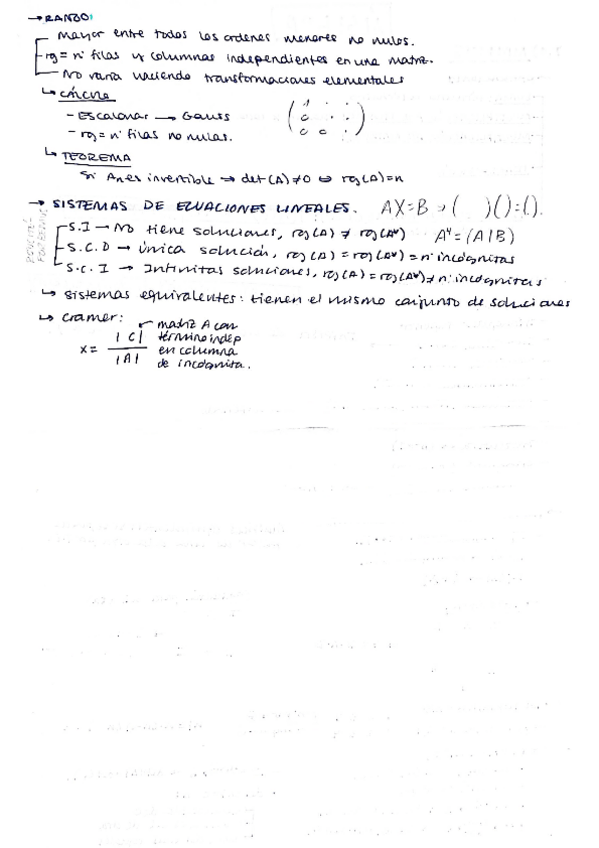 → RANGO:
Mayor entre todos los ordenes menores no nulos.
rg = nº filas y columnas independientes en una matriz.
No varía haciendo transformaciones elementales
↳ CÁLCULO
- Escalonar → Gauss
- rg = nº filas no nulas.
↳ TEOREMA
Si A es invertible → det(A) ≠ 0 ⇔ rg(A) = n
→ SISTEMAS DE ECUACIONES LINEALES. AX = B → ( )( ) = ( ).
S.I → No tiene soluciones, rg(A) ≠ rg(A*) A* = (A|B)
S.C.D → Única solución, rg(A) = rg(A*) = nº incógnitas
S.C.I → Infinitas soluciones, rg(A) = rg(A*) ≠ nº incógnitas
↳ Sistemas equivalentes: tienen el mismo conjunto de soluciones
↳ Cramer:
x = |C| / |A|
matriz A con
término indep
en columna
de incógnita.